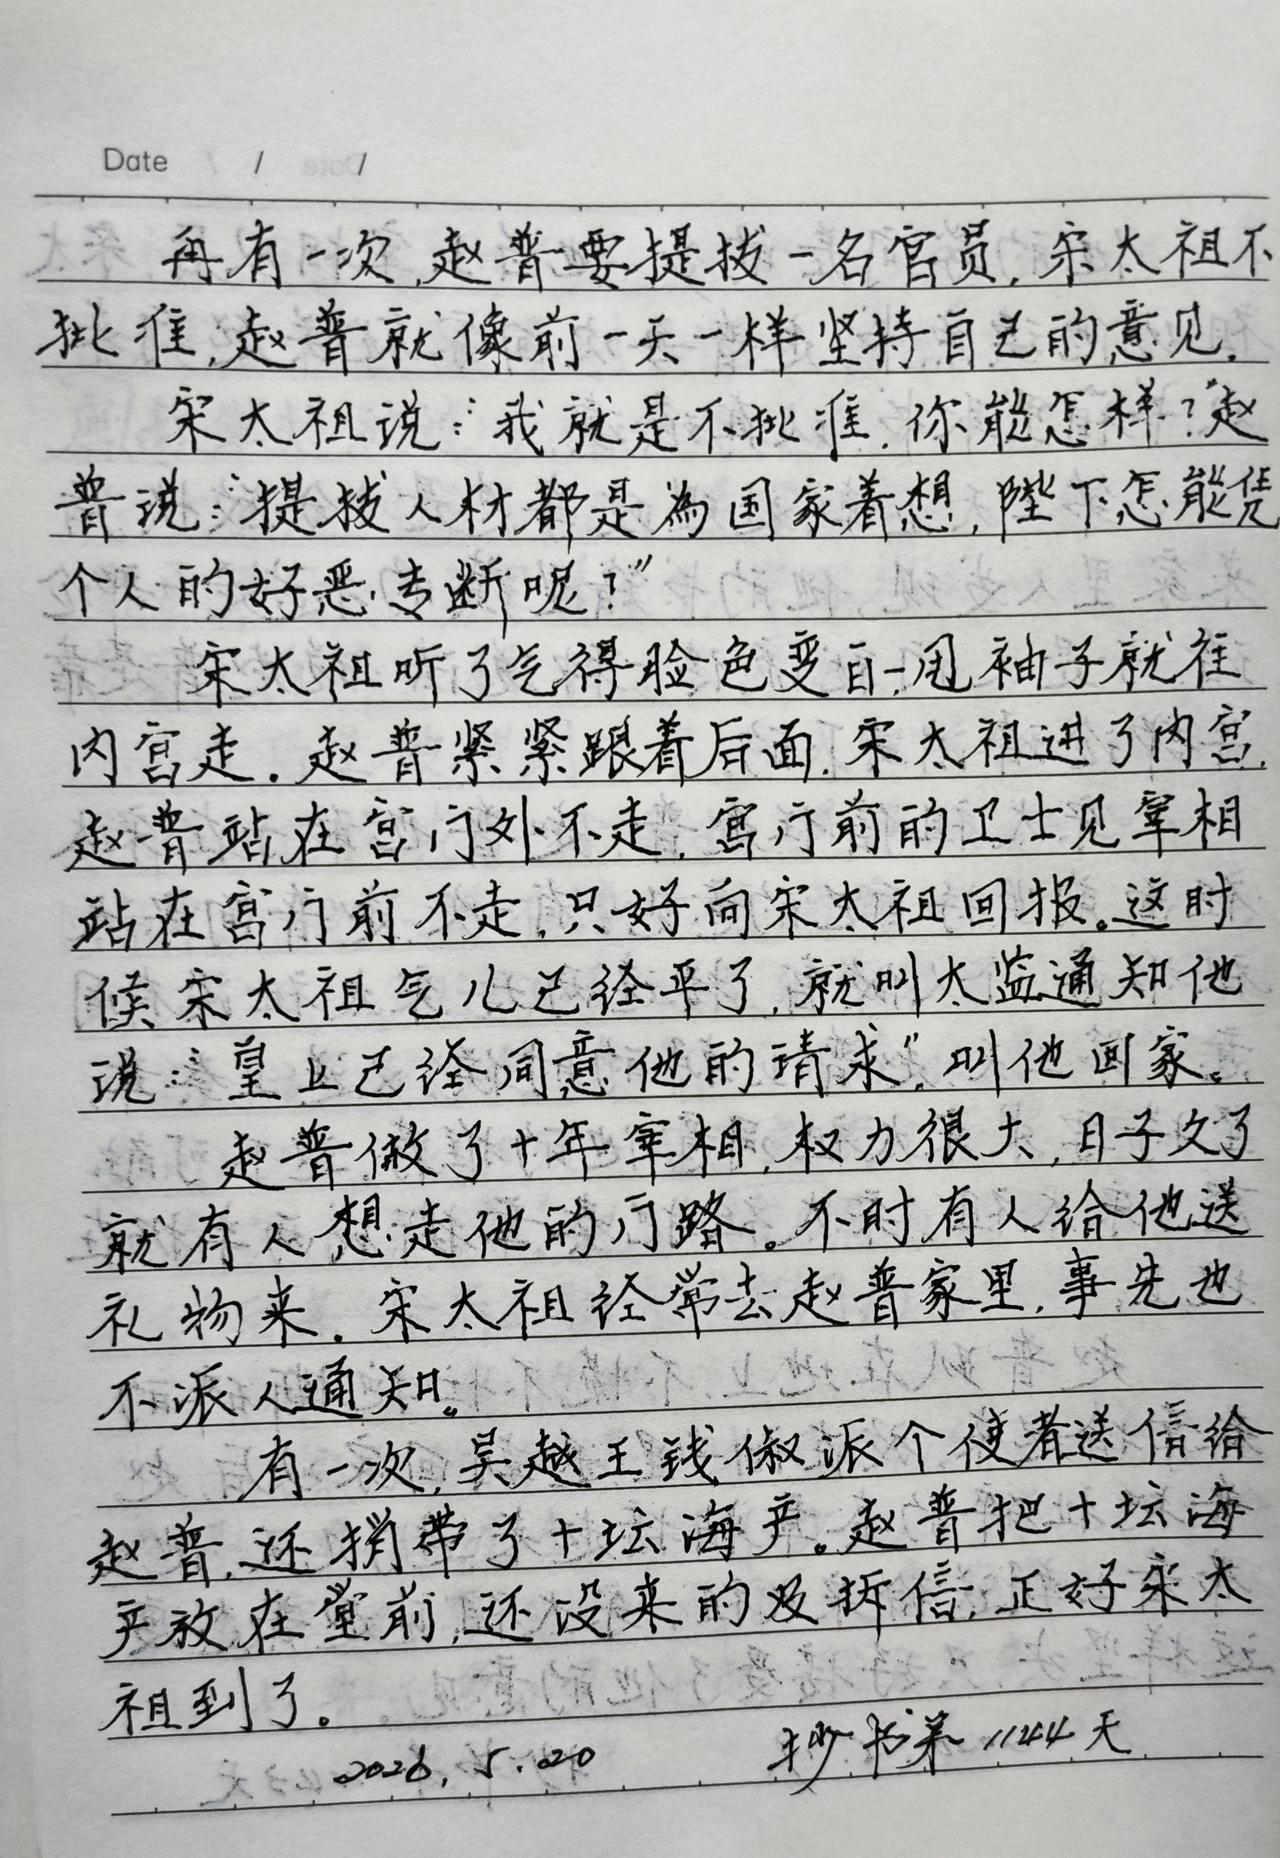 Date / /
再有一次,赵普要提拔一名官员,宋太祖不
批准,赵普就像前一天一样坚持自己的意见.
宋太祖说:“我就是不批准,你能怎样?”赵
普说:“提拔人材都是為国家着想,陛下怎能凭
个人的好恶专断呢?”
宋太祖听了气得脸色变白,一甩袖子就往
内宫走.赵普紧紧跟着后面,宋太祖进了内宫,
赵普站在宫门外不走,宫门前的卫士见宰相
站在宫门前不走,只好向宋太祖回报。这时
候宋太祖气儿已经平了,就叫太监通知他
说:“皇上已经同意他的请求”,叫他回家。
赵普做了十年宰相,权力很大,日子久了
就有人想走他的门路。不时有人给他送
礼物来.宋太祖经常去赵普家里,事先也
不派人通知。
有一次,吴越王钱俶派个使者送信给
赵普,还捎带了十坛海产。赵普把十坛海
产放在堂前,还没来的及拆信,正好宋太
祖到了。
2026.5.20 抄书第1144天